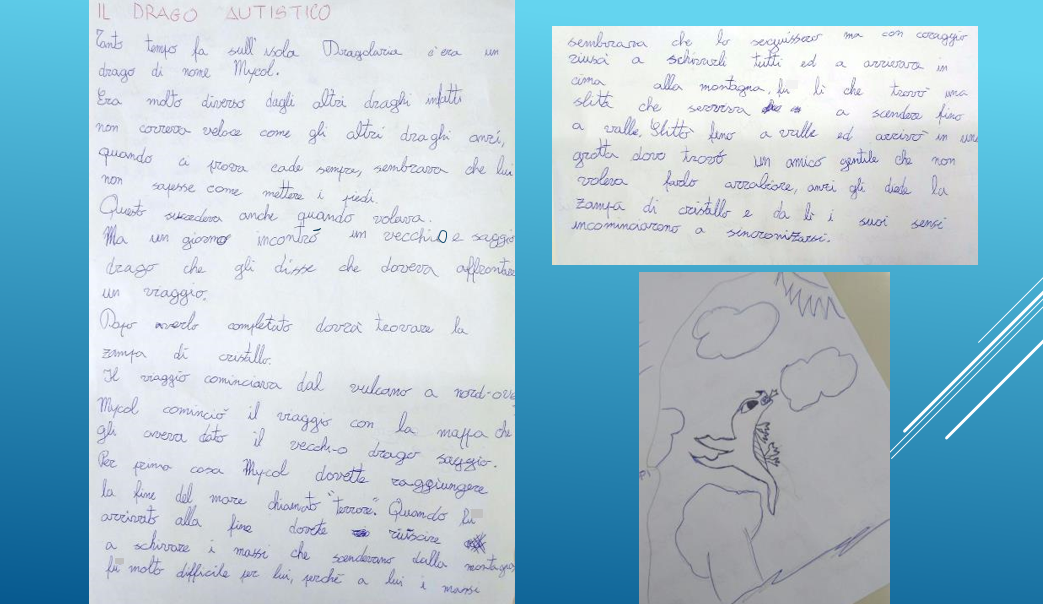 IL DRAGO AUTISTICO
Tanto tempo fa sull'isola Dragolaria c'era un
drago di nome Mycol.
Era molto diverso dagli altri draghi infatti
non correva veloce come gli altri draghi anzi,
quando ci prova cade sempre, sembrava che lui
non sapesse come mettere i piedi.
Questo succedeva anche quando volava.
Ma un giorno incontrò un vecchio e saggio
drago che gli disse che doveva affrontare
un viaggio.
Dopo averlo completato dovrà trovare la
zampa di cristallo.
Il viaggio cominciava dal vulcano a nord-ove
Mycol cominciò il viaggio con la mappa che
gli aveva dato il vecchio drago saggio.
Per prima cosa Mycol dovette raggiungere
la fine del mare chiamato "terrore". Quando fu
arrivato alla fine dovete riuscire
a schivare i massi che scendevano dalla montagna
fu molto difficile per lui, perché a lui i massi
sembrava che lo seguissero ma con coraggio
riuscì a schivarli tutti ed a arrivare in
cima alla montagna, fu lì che trovò una
slitta che serviva a scendere fino
a valle, Slittò fino a valle ed arrivò in una
grotta dove trovò un amico gentile che non
voleva farlo arrabbiare, anzi gli diede la
zampa di cristallo e da lì i suoi sensi
incominciarono a sincronizzarsi.